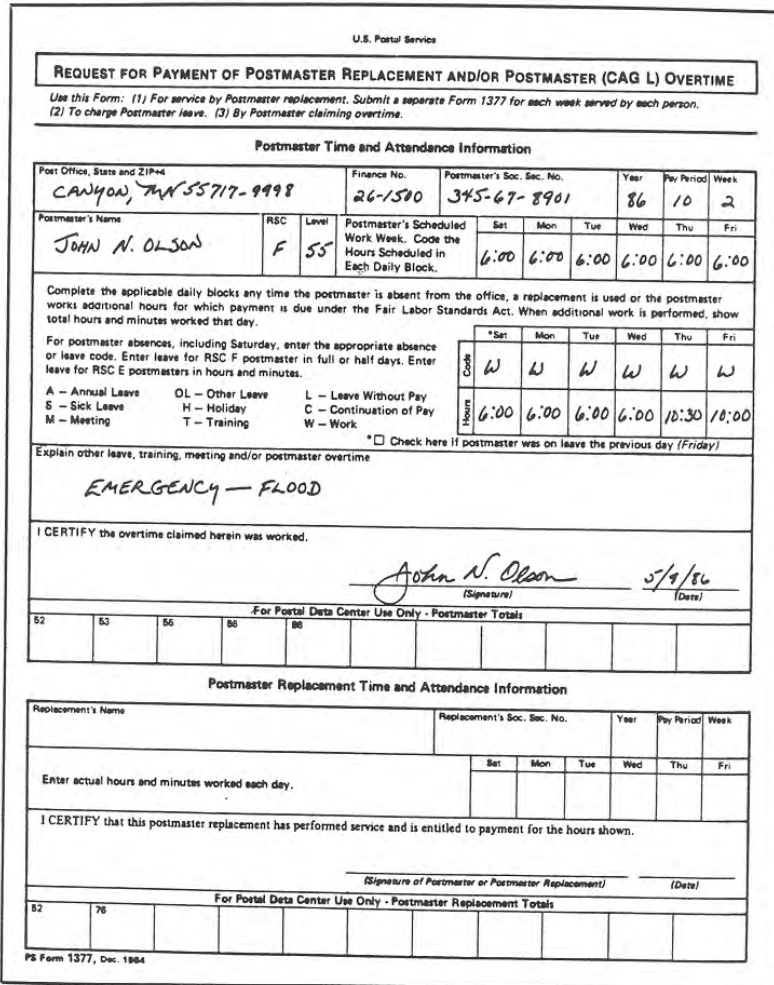 U.S. Postal Service
REQUEST FOR PAYMENT OF POSTMASTER REPLACEMENT AND/OR POSTMASTER (CAG L) OVERTIME
Use this Form: (1) For service by Postmaster replacement. Submit a separate Form 1377 for each week served by each person.
(2) To charge Postmaster leave. (3) By Postmaster claiming overtime.
Postmaster Time and Attendance Information
Post Office, State and ZIP+4 Finance No. Postmaster's Soc. Sec. No. Year Pay Period Week
CANYON, MN 55717-9998 26-1500 345-67-8901 86 10 2
Postmaster's Name RSC Level Postmaster's Scheduled Work Week. Code the Hours Scheduled in Each Daily Block. Sat Mon Tue Wed Thu Fri
JOHN N. OLSON F 55 6:00 6:00 6:00 6:00 6:00 6:00
Complete the applicable daily blocks any time the postmaster is absent from the office, a replacement is used or the postmaster
works additional hours for which payment is due under the Fair Labor Standards Act. When additional work is performed, show
total hours and minutes worked that day.
For postmaster absences, including Saturday, enter the appropriate absence
or leave code. Enter leave for RSC F postmaster in full or half days. Enter
leave for RSC E postmasters in hours and minutes.
*Sat Mon Tue Wed Thu Fri
Code W W W W W W
A – Annual Leave OL – Other Leave L – Leave Without Pay
S – Sick Leave H – Holiday C – Continuation of Pay
M – Meeting T – Training W – Work
Hours 6:00 6:00 6:00 6:00 10:30 10:00
*☐ Check here if postmaster was on leave the previous day (Friday)
Explain other leave, training, meeting and/or postmaster overtime
EMERGENCY — FLOOD
I CERTIFY the overtime claimed herein was worked.
John N. Olson 5/9/86
(Signature) (Date)
For Postal Data Center Use Only - Postmaster Totals
52 53 55 56
Postmaster Replacement Time and Attendance Information
Replacement's Name Replacement's Soc. Sec. No. Year Pay Period Week
Sat Mon Tue Wed Thu Fri
Enter actual hours and minutes worked each day.
I CERTIFY that this postmaster replacement has performed service and is entitled to payment for the hours shown.
(Signature of Postmaster or Postmaster Replacement) (Date)
For Postal Data Center Use Only - Postmaster Replacement Totals
52 76
PS Form 1377, Dec. 1984